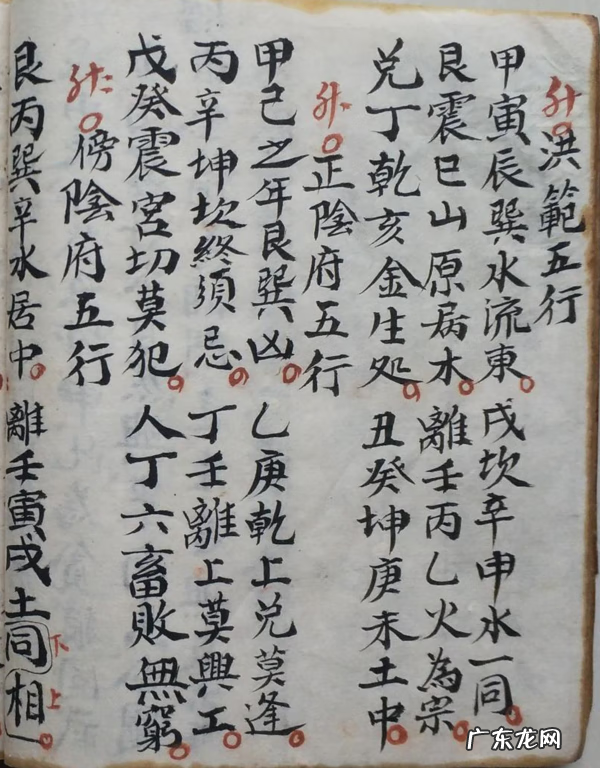 洪範五行
甲寅辰巽水流東 戌坎辛申水一同
艮震巳山原居木 離壬丙乙火為宗
兑丁乾亥金生处 丑癸坤庚未土中
正陰府五行
甲己之年艮巽凶 乙庚乾上兑莫逢
丙辛坤坎終須忌 丁壬離上莫興工
戊癸震宮切莫犯 人丁六畜敗無窮
傍陰府五行
艮丙巽辛水居中 離壬寅戌土同相
下
上
广东龙网